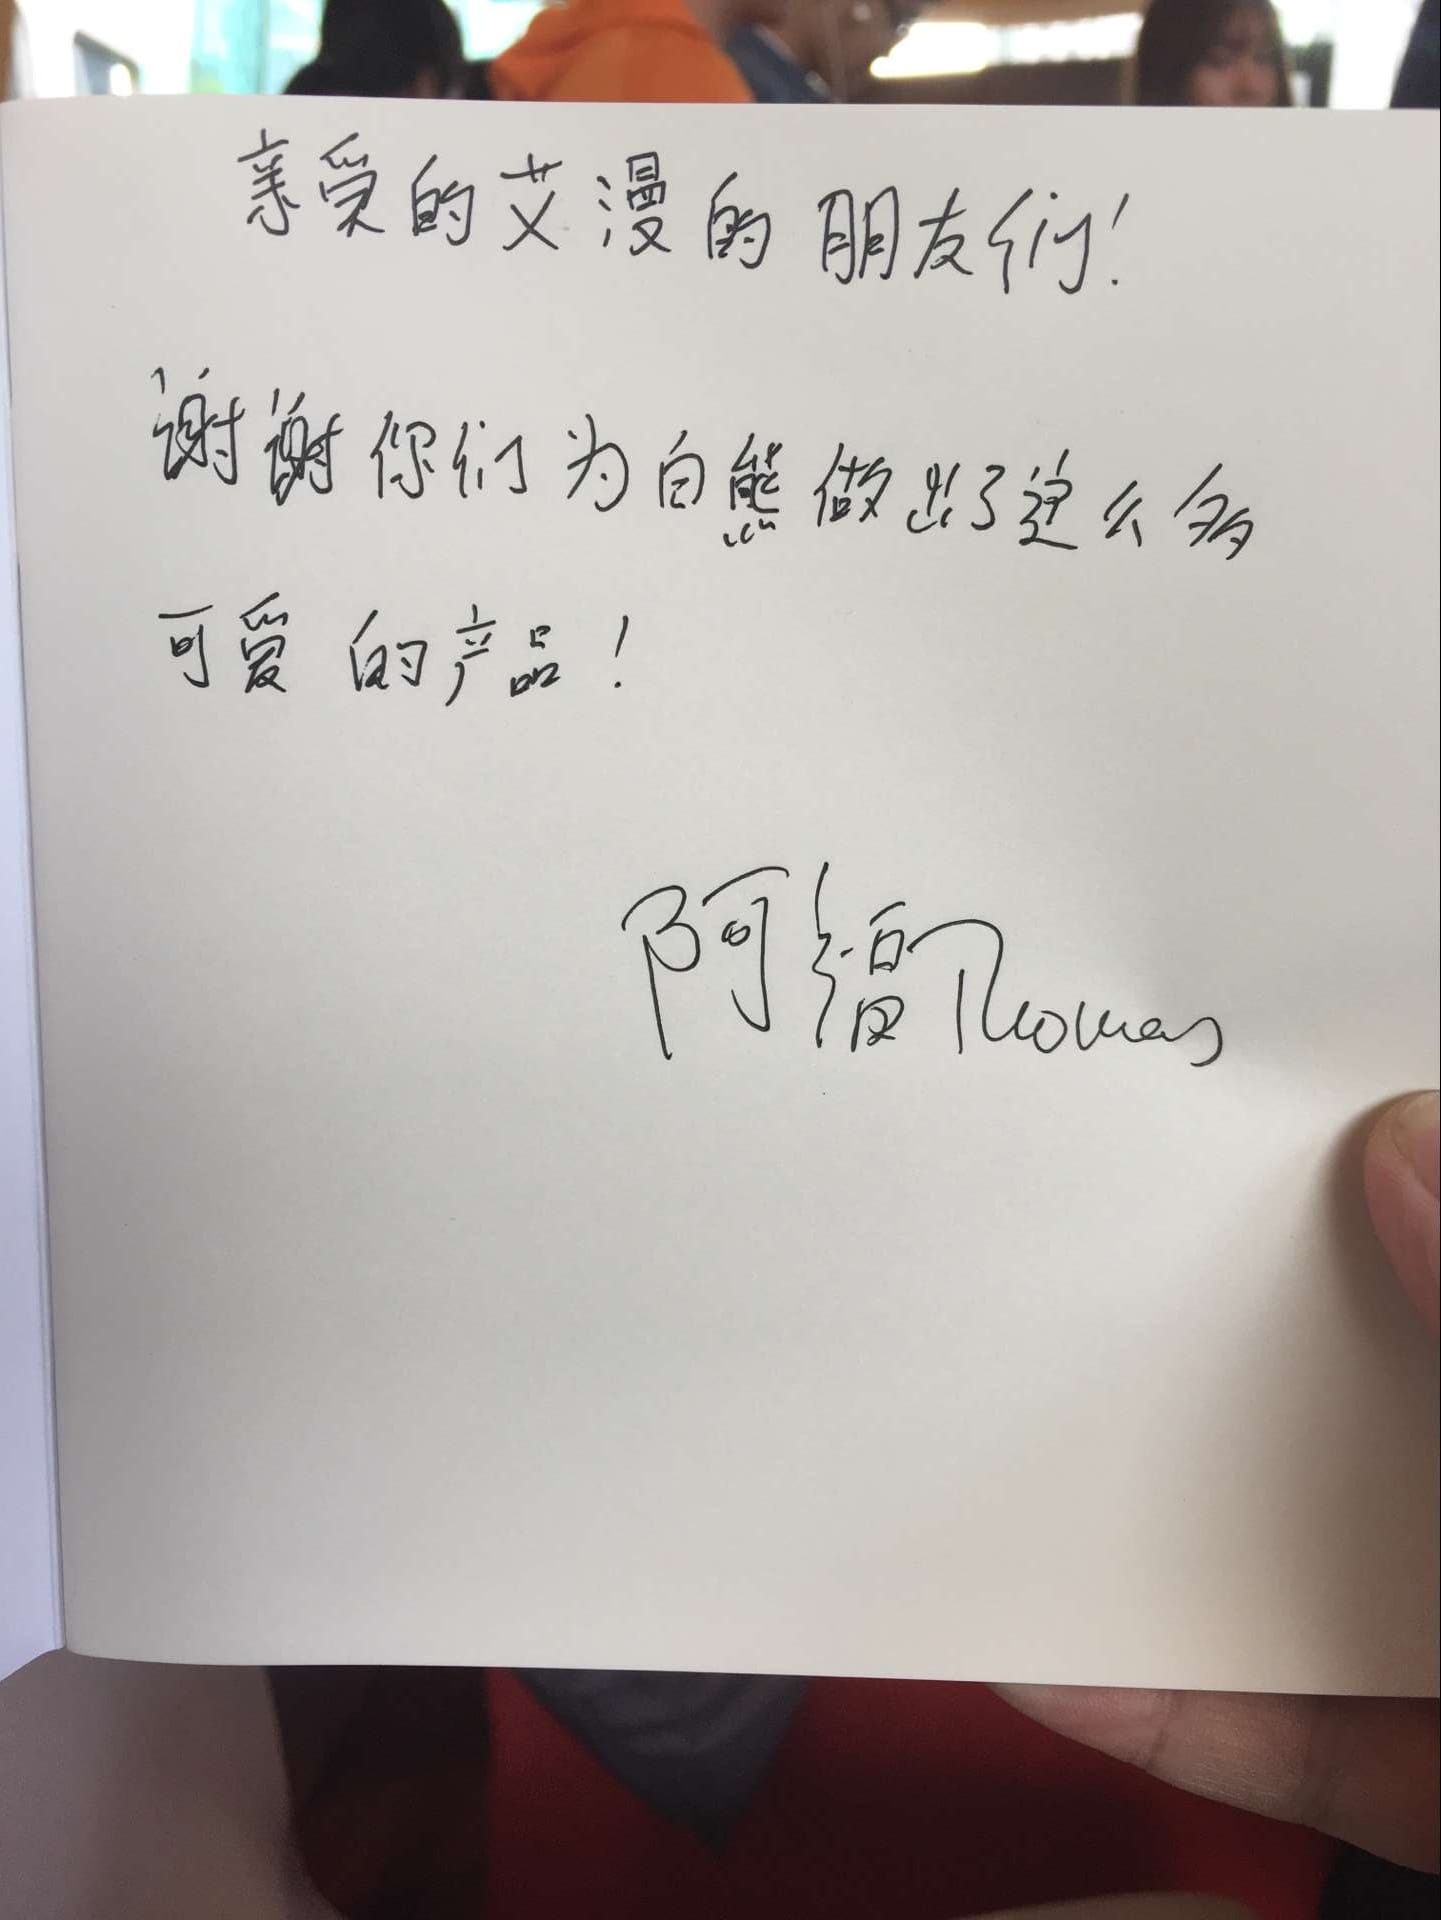 亲爱的艾漫的朋友们！
谢谢你们为白熊做出了这么多
可爱的产品！
阿福Thomas